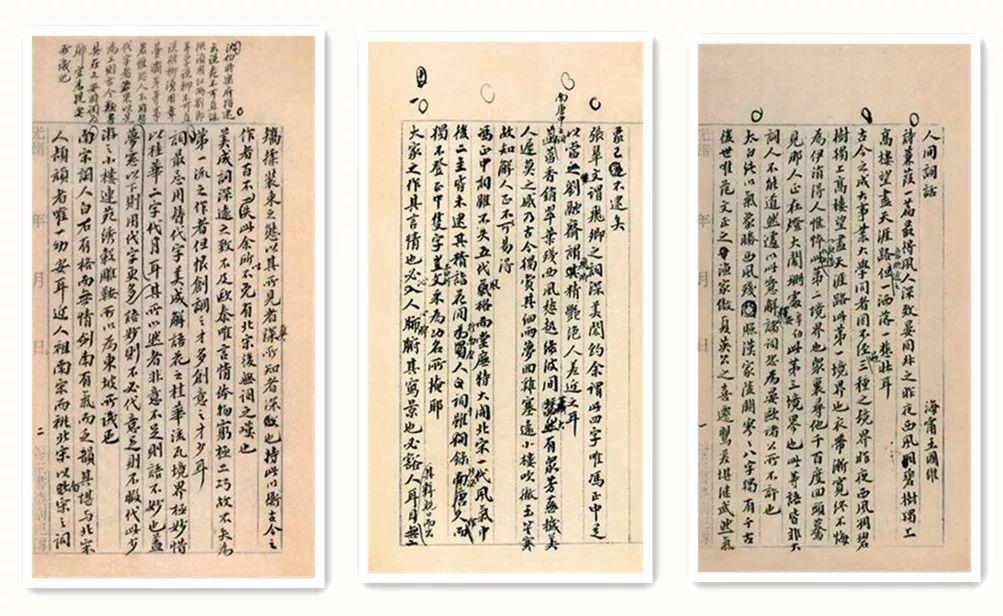 人間詞話
海甯王國維
詩蒹葭一篇最得風人深致晏同叔之昨夜西風凋碧樹獨上
高樓望盡天涯路但一洒落一悲壯耳
古今之成大事業大學問者罔不經三種之境界昨夜西風凋碧
樹獨上高樓望盡天涯路此第一境界也衣帶漸寬終不悔
為伊消得人憔悴此第二境界也眾裏尋他千百度回頭驀
見那人正在燈火闌珊處此第三境界也此等語皆非大
詞人不能道然遽以此意解諸詞恐為晏歐諸公所不許也
太白純以氣象勝西風殘照漢家陵闕寥寥八字獨有千古
後世唯范文正之漁家傲夏英公之喜遷鶯差堪繼武然氣
象已不逮矣
張皋文謂飛卿之詞深美閎約余謂此四字唯馮正中足
以當之劉融齋謂飛卿精艷絕人差近之耳
南唐中主詞
菡萏香銷翠葉殘西風愁起綠波間大有眾芳蕪穢美
人遲莫之感乃古今獨賞其細雨夢回雞塞遠小樓吹徹玉笙寒
故知解人正不易得
馮正中詞雖不失五代風格而堂廡特大開北宋一代風氣中
後二主皆未逮其精詣花間南唐
獨不登正中隻字豈文采為功名所掩耶
大家之作其言情也必沁人心脾其寫景也必豁人耳目無一
其辭脫口而出
矯揉裝束之態以其所見者真所知者深也持此以衡古今之
作者百不失一此余所以不免有北宋後無詞之嘆也
美成詞深遠之致不及歐秦唯言情體物窮極工巧故不失為
第一流之作者但恨創調之才多創意之才少耳
詞最忌用替代字美成解語花之桂華流瓦境界極妙惜
以桂華二字代月耳其所以然者非意不足則語不妙也蓋
夢窗以下則用代字更多語妙則不必代意足則不暇代此少
游之小樓連苑繡轂雕鞍所以為東坡所譏也
南宋詞人白石有格而無情劍南有氣而乏韻其堪與北宋
人頡頏者唯一幼安耳近人祖南宋而祧北宋以北宋之詞
沈伯時樂府指迷
云說桃不可直說
桃須用紅雨劉郎
等字說柳不可直
說破柳須用章臺
灞岸等字
若惟恐人不用替
代字者果以是
為工則古今類書
具在又安用詞為
耶宜其為提要
所譏也
光緒 年 月 日
二
一